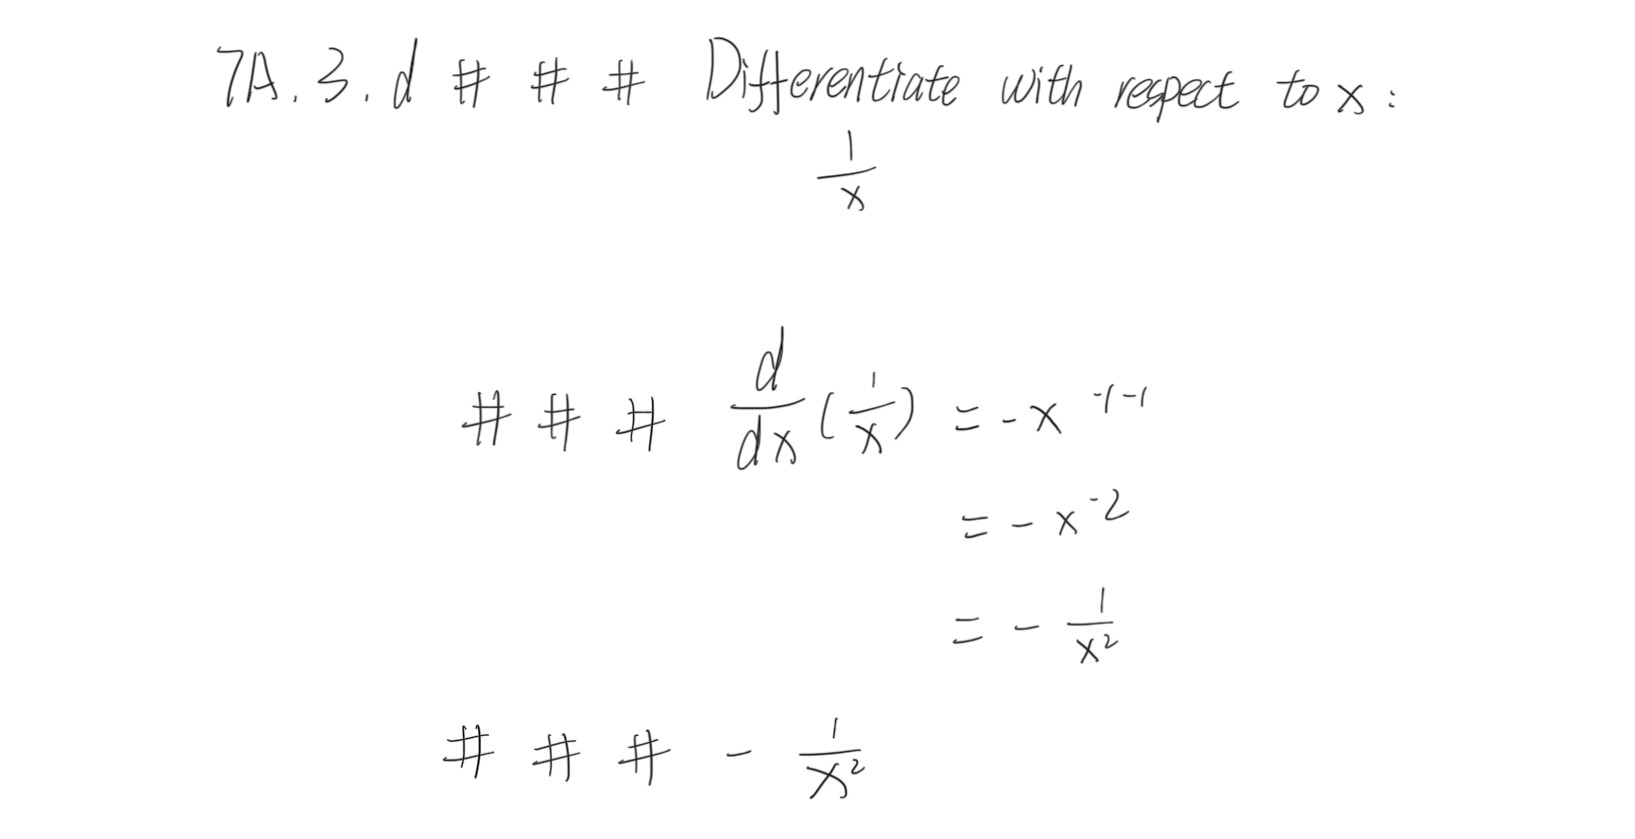 7A.3.d # # # Differentiate with respect to x:
1/x
# # # d/dx (1/x) = -x^{-1-1}
= -x^{-2}
= - 1/x^2
# # # - 1/x^2